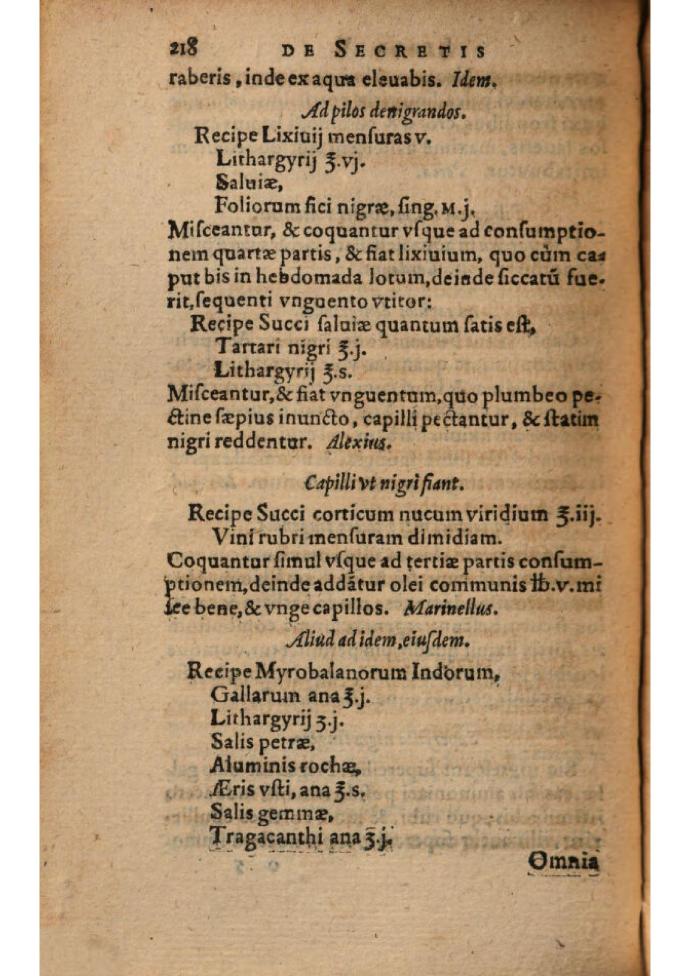 218 DE SECRETIS
raberis, inde ex aqua eleuabis. Idem.
Ad pilos denigrandos.
Recipe Lixiuij mensuras v.
Lithargyrij ℥.vj.
Saluiæ,
Foliorum fici nigræ, sing. M.j.
Misceantur, & coquantur vsque ad consumptio-
nem quartæ partis, & fiat lixiuium, quo cùm ca-
put bis in hebdomada lotum, deinde siccatũ fue-
rit, sequenti vnguento vtitor:
Recipe Succi saluiæ quantum satis est,
Tartari nigri ℥.j.
Lithargyrij ℥.s.
Misceantur, & fiat vnguentum, quo plumbeo pe-
ctine sæpius inuncto, capilli pectantur, & statim
nigri reddentur. Alexius.
Capilli vt nigri fiant.
Recipe Succi corticum nucum viridium ℥.iij.
Vini rubri mensuram dimidiam.
Coquantur simul vsque ad tertiæ partis consum-
ptionem, deinde addãtur olei communis ℔.v. mi
sce bene, & vnge capillos. Marinellus.
Aliud ad idem, eiusdem.
Recipe Myrobalanorum Indorum,
Gallarum ana ℥.j.
Lithargyrij ʒ.j.
Salis petræ,
Aluminis rochæ,
Æris vsti, ana ℥.s.
Salis gemmæ,
Tragacanthi ana ℥.j.
Omnia